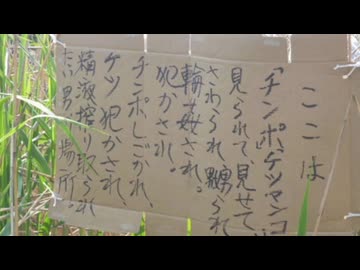 ここは
「チンポ、ケツマンコ」
見られて見せて、
さわられ嬲られ
輪姦され。
犯かされ。
チンポしごかれ、
ケツ犯かされ、
精液搾り取られ
たい男の場所。